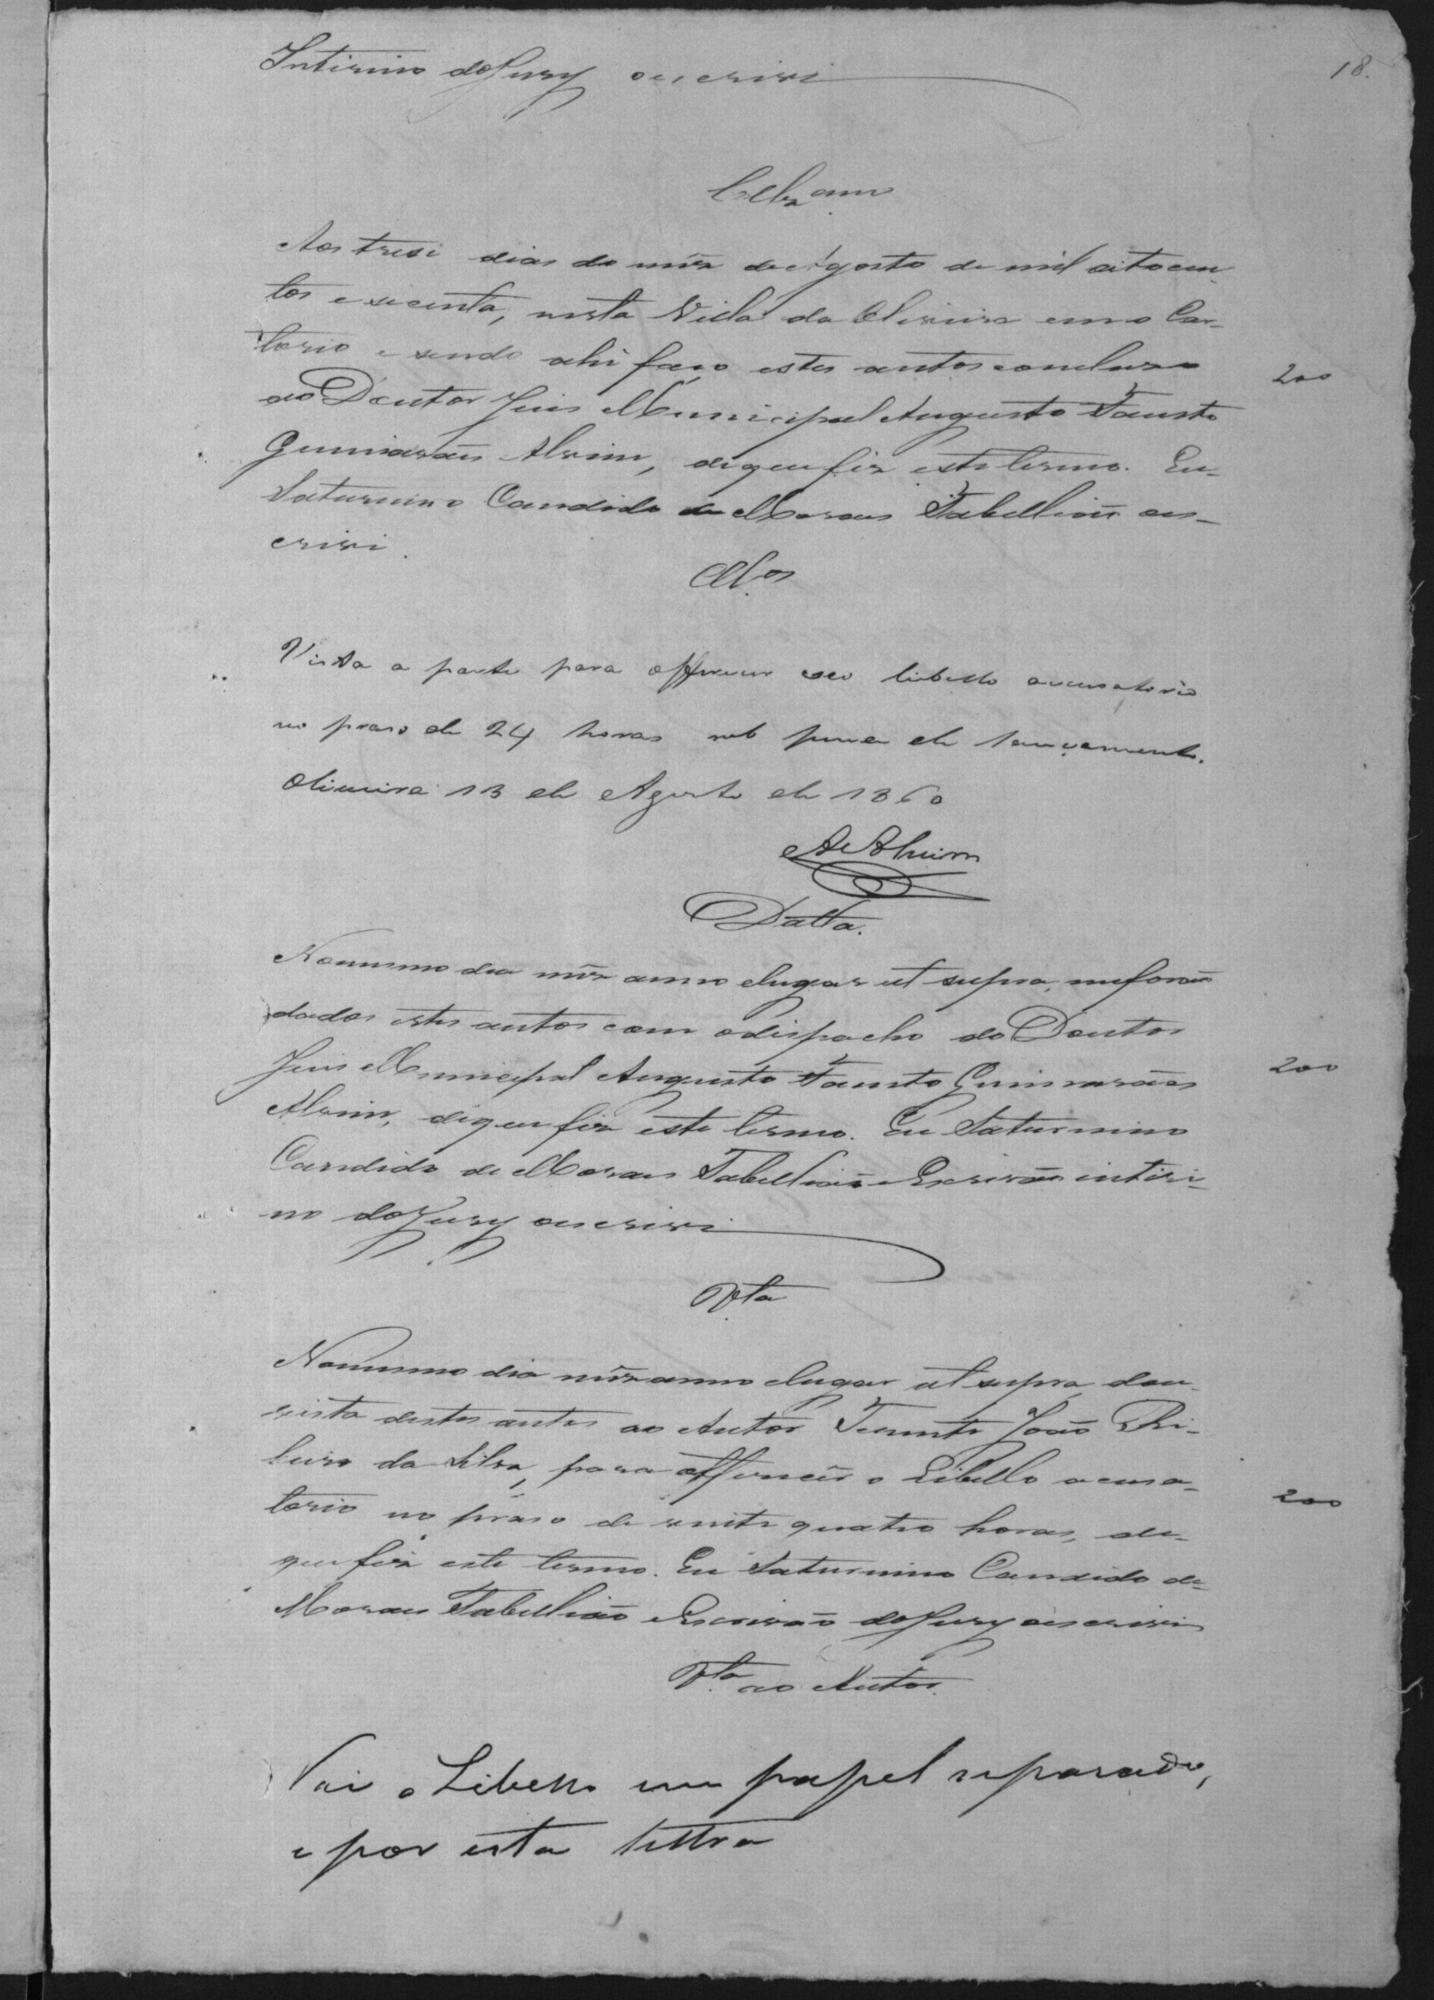 Interino do Jury o escrivi
18.
Clz.am
Aos trese dias do mês de Agosto de mil oitocen-
tos e secenta, nesta Villa da Oliveira em o Car-
torio e sendo ahi faço estes autos concluzos
ao Doutor Juis Municipal Augusto Fausto
200
Guimarães Alvim, de que fiz este termo. Eu
Saturnino Candido de Moraes Tabellião o es-
crivi.
Cl.os
Vista a parte para offerecer seo libello accusatorio
no praso de 24 horas sob pena de lançamento.
Oliveira 13 de Agosto de 1860
A Alvim
Datta.
No mesmo dia mês anno e lugar ut supra, me forão
dados estes autos com o dispacho do Doutor
Juis Municipal Augusto Fausto Guimarães
200
Alvim, de que fiz este termo. Eu Saturnino
Candido de Moraes Tabellião e Escrivão interi-
no do Jury o escrivi
V.ta
No mesmo dia mês anno e lugar ut supra, dou
vista destes autos ao Autor Tenente João Ri-
beiro da Silva, para offerecêr o Libello acusa-
200
torio no praso de vinte quatro horas, de
que fiz este termo. Eu Saturnino Candido de
Moraes Tabellião Escrivão do Jury o escrivi
V.ta ao Autor.
Vai o Libello em papel separado,
e por esta lettra